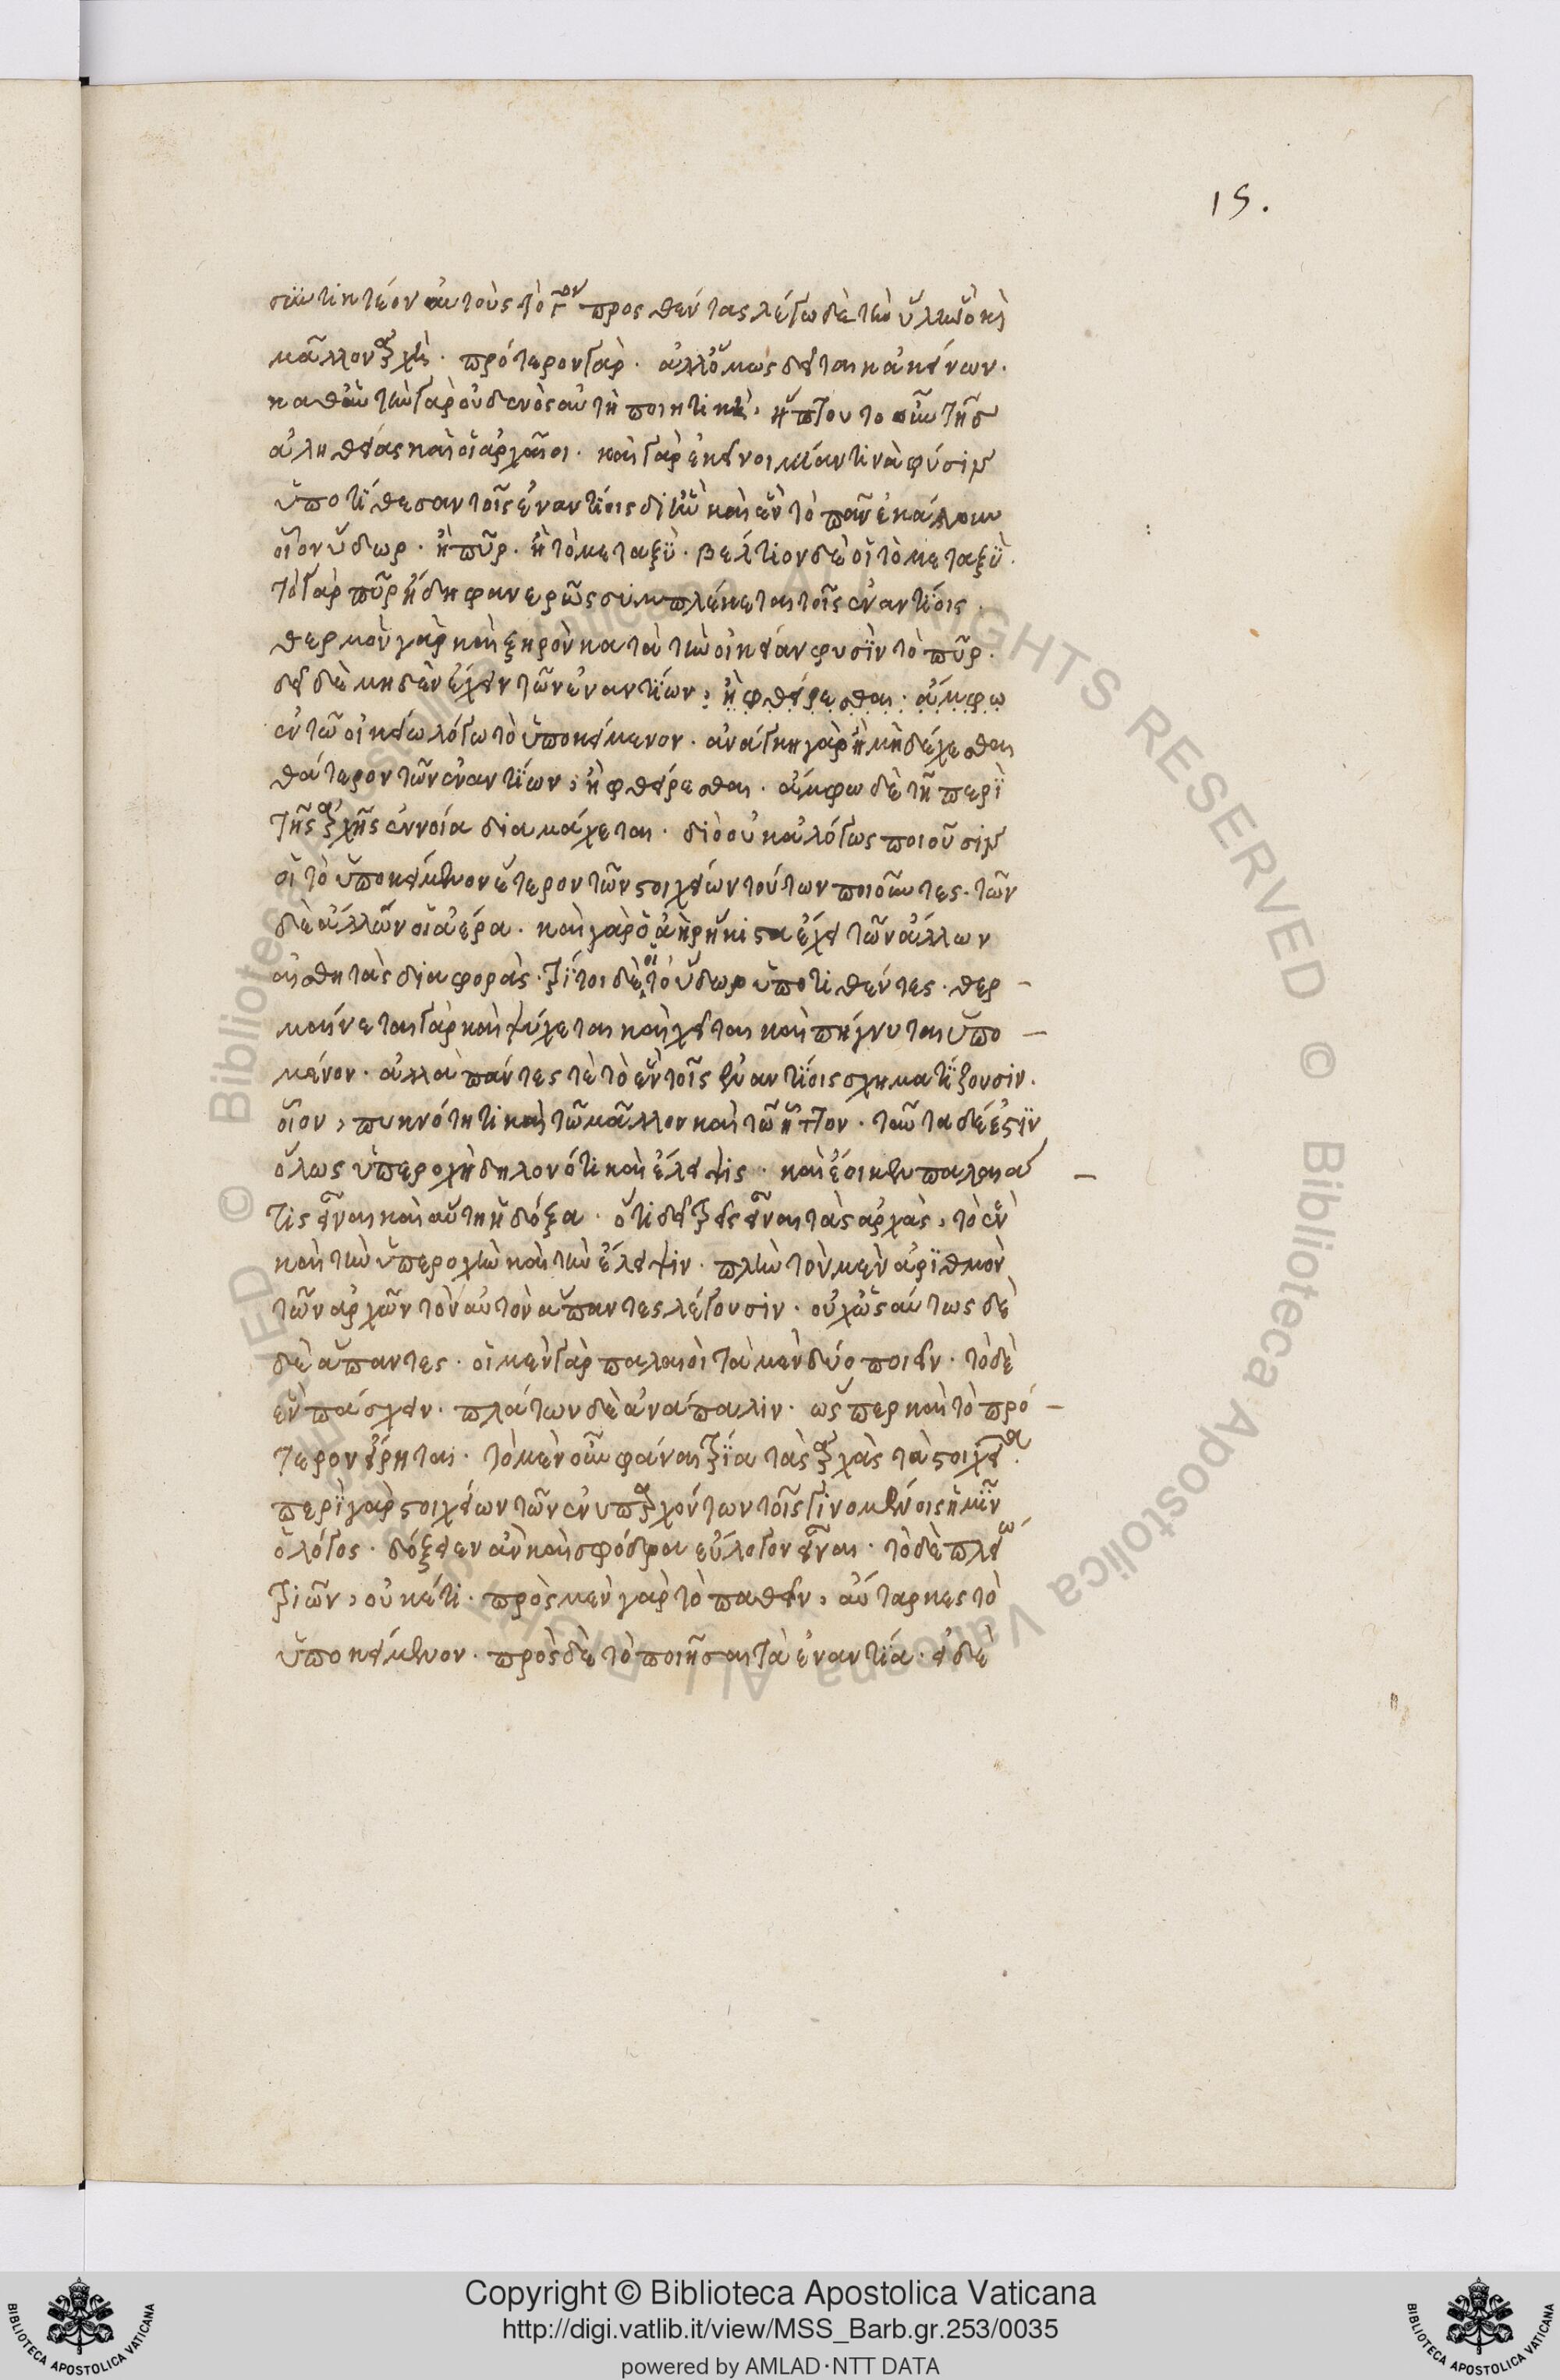 15.
συστικτέον αὐτοὺς τὸ γ̄ον προσθέντας λέγω δὲ τὴν ὕλην ὃ καὶ
μᾶλλον ἀρχὴ. πρότερον γάρ. ἀλλ' ὅμως δεῖται κἀκείνων.
καθ' αὑτὴν γὰρ οὐδενὸς αὐτὴ ποιητικὴ. ἥπτοντο οὖν τῆς
ἀληθείας καὶ οἱ ἀρχαῖοι. καὶ γὰρ ἐκεῖνοι μίαν τινὰ φύσιν
ὑποτίθεσαν τοῖς ἐναντίοις δι' ἣν καὶ ἓν τὸ πᾶν ἐκάλουν
οἷον ὕδωρ. ἢ πῦρ. ἢ τὸ μεταξύ. βέλτιον δὲ οἱ τὸ μεταξύ.
τὸ γὰρ πῦρ ἤδη φανερῶς συμπλέκεται τοῖς ἐναντίοις.
θερμὸν γὰρ καὶ ξηρὸν κατὰ τὴν οἰκείαν φυσὶν τὸ πῦρ.
δεῖ δὲ μηδὲν ἔχειν τῶν ἐναντίων, ἢ φθείρεσθαι. ἄμφω
ἐν τῶ οἰκείω λόγω τὸ ὑποκείμενον. ἀνάγκη γὰρ ἢ μὴ δέχεσθαι
θάτερον τῶν ἐναντίων, ἢ φθείρεσθαι. ἄμφω δὲ τῆ περὶ
τῆς ἀρχῆς ἐννοία διαμάχεται. διὸ οὐκ ἀλόγως ποιοῦσιν
οἱ τὸ ὑποκείμενον ἕτερον τῶν στοιχείων τούτων ποιοῦντες. τῶν
δὲ ἀλλῶν οἱ ἀέρα. καὶ γὰρ ὁ ἀὴρ ἥκιστα ἔχει τῶν ἄλλων
αἰσθητὰς διαφορὰς. τρίτοι δὲ οἱ τὸ ὕδωρ ὑποτιθέντες. θερ-
μαίνεται γὰρ καὶ ψύχεται καὶ χεῖται καὶ πήγνυται ὑπο-
μένον. ἀλλὰ πάντες τὲ τὸ ἓν τοῖς ἐναντίοις σχηματίζουσιν.
οἷον, πυκνότητι καὶ τῶ μᾶλλον καὶ τῶ ἧττον. ταῦτα δέ ἐστὶν
ὅλως ὑπεροχὴ δηλονότι καὶ ἔλειψις. καὶ ἔοικεν παλαιά -
τις εἶναι καὶ αὕτη ἡ δόξα. ὅτι δεῖ τρεῖς εἶναι τὰς ἀρχάς, τὸ ἓν
καὶ τὴν ὑπεροχὴν καὶ τὴν ἔλειψιν. πλὴν τὸν μὲν ἀριθμὸν
τῶν ἀρχῶν τὸν αὐτὸν ἅπαντες λέγουσιν. οὐχ ὡσαύτως δὲ
δὲ ἅπαντες. οἱ μὲν γὰρ παλαιοὶ τὰ μὲν δύο ποιεῖν. τὸ δὲ
ἓν πάσχειν. πλάτων δὲ ἀνάπαλιν. ὥσπερ καὶ τὸ πρό-
τερον εἴρηται. τὸ μὲν οὖν φάναι τρία τὰς ἀρχὰς τὰ στοιχεῖα.
περὶ γὰρ στοιχείων τῶν ἐνυπαρχόντων τοῖς γινομένοις ἡμῖν
ὁ λόγος. δόξειεν ἂν καὶ σφόδρα εὔλογον εἶναι. τὸ δὲ πλείω
τριῶν, οὐκέτι. πρὸς μὲν γὰρ τὸ παθεῖν, αὔταρκες τὸ
ὑποκείμενον. πρὸς δὲ τὸ ποιῆσαι τὰ ἐναντία. εἰ δὲ
Copyright © Biblioteca Apostolica Vaticana
http://digi.vatlib.it/view/MSS_Barb.gr.253/0035
powered by AMLAD·NTT DATA